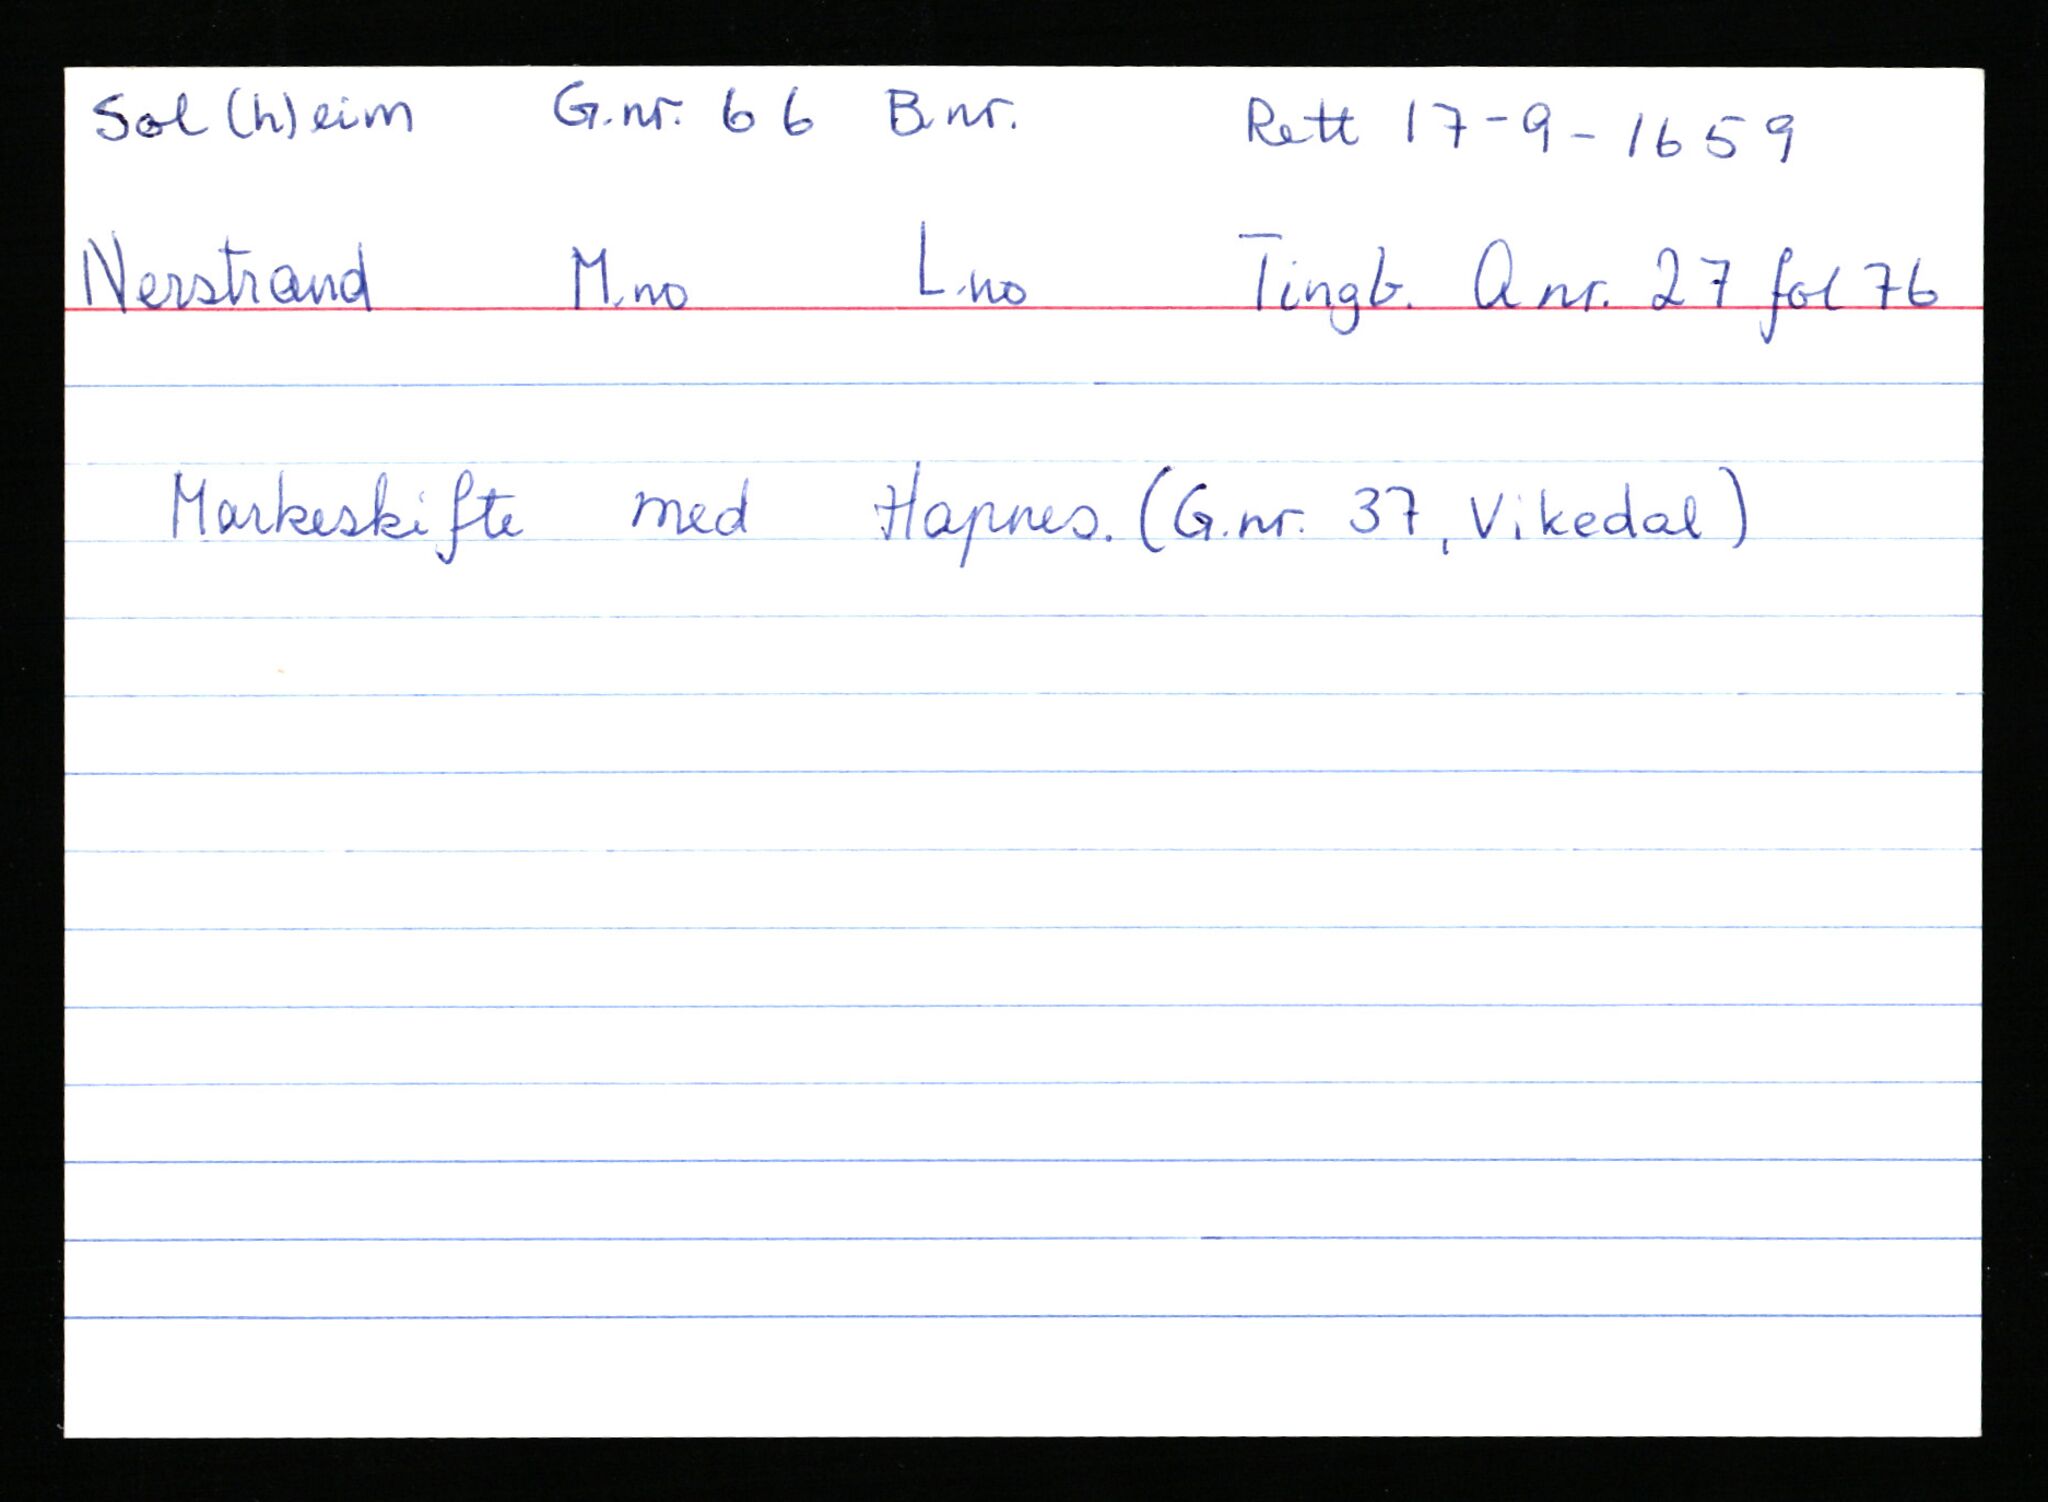 Sol(h)eim G.nr. 66 B.nr. Rett 17-9-1659
Nerstrand M.no L.no Tingb. A nr. 27 fol 76
Markeskifte med Hapnes. (G.nr. 37, Vikedal)